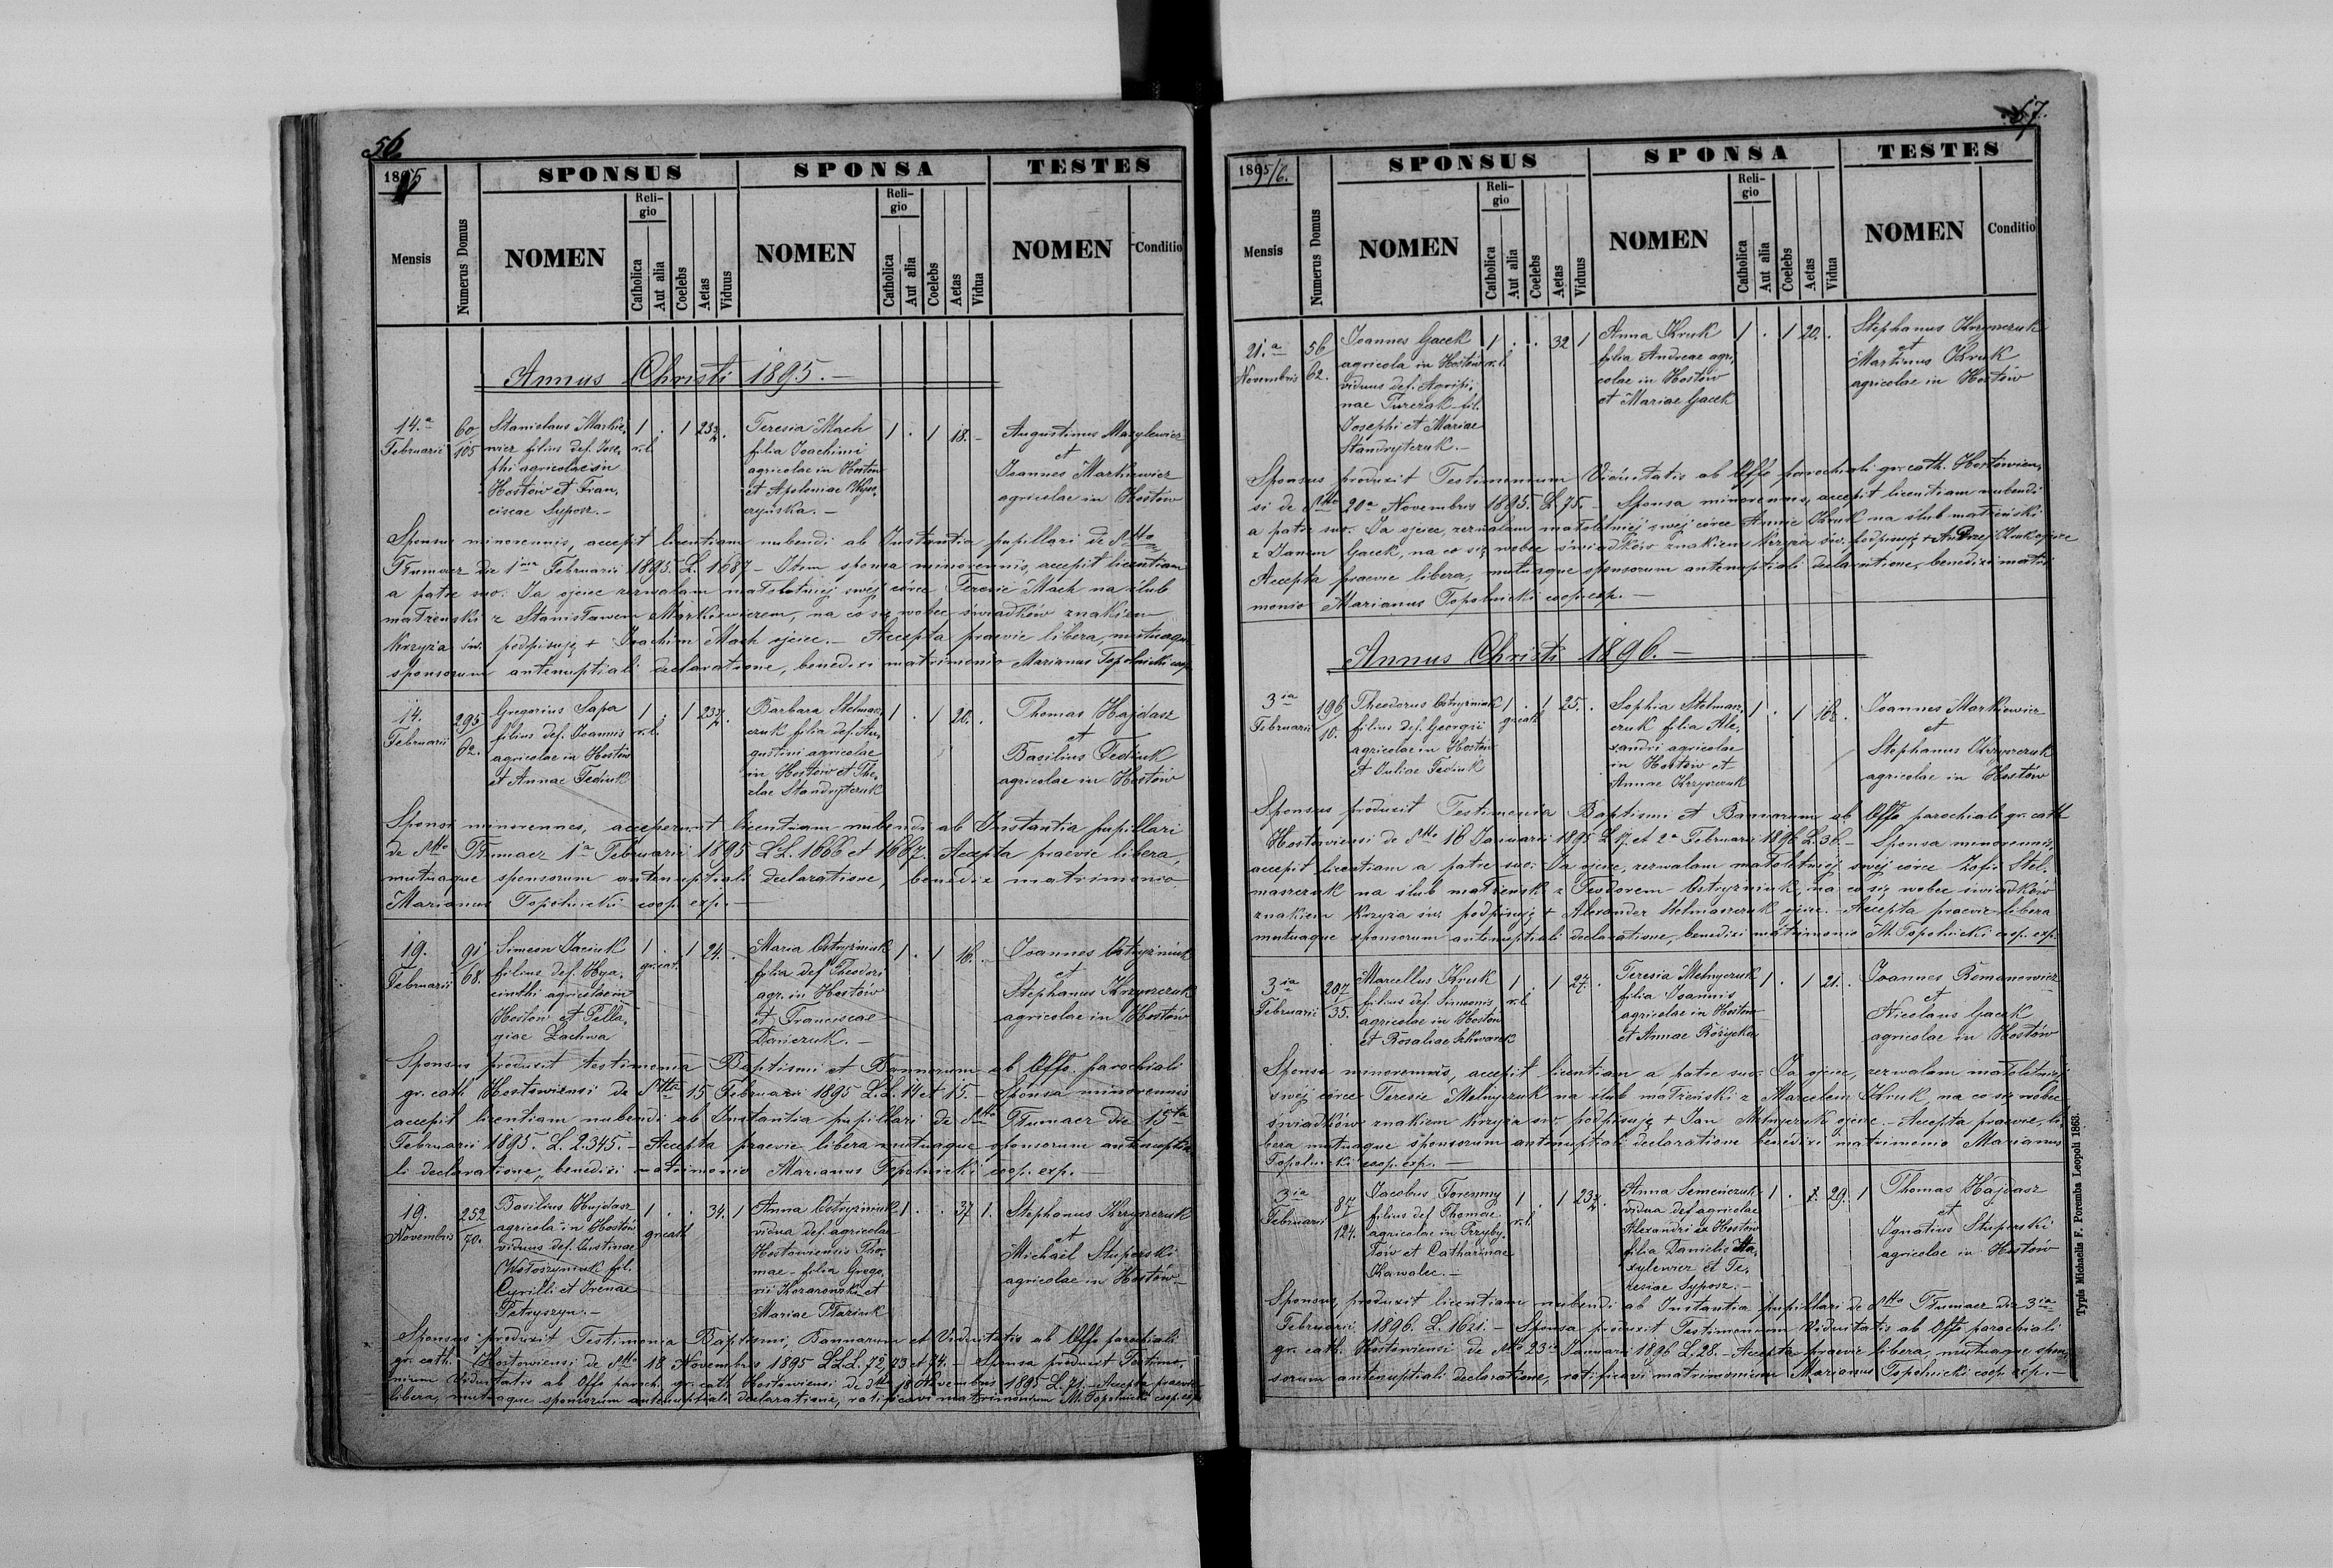 56.
1895
SPONSUS
SPONSA
TESTES
Mensis
Numerus Domus
NOMEN
Religio
Catholica
Aut alia
Coelebs
Aetas
Viduus
NOMEN
Religio
Catholica
Aut alia
Coelebs
Aetas
Vidua
NOMEN
Conditio
Annus Christi 1895. —
14.a
Februarii
60
105
Stanislaus Markie-
wicz filius def. Jose-
phi agricolae in
Hostów et Fran-
ciscae Syposz. —
1
r.l.
.
1
23½
.
Teresia Mach
filia Joachimi
agricolae in Hostów
et Apoloniae
1
.
1
18.
-
Augustinus Mazylewicz
et
Joannes Markiewicz
agricolae in Hostów
Sponsus minorennis, accepit licentiam nubendi ab Instantia pupillari de dtto
Tłumacz die 1ma Februarii 1895. L. 1687 — Idem sponsa minorennis, accepit licentiam
a patre suo. Ja ojciec zezwalam małoletniej swej córce Teresie Mach na ślub
małżeński z Stanisławem Markiewiczem, na co się wobec świadków znakiem
krzyża św. podpisuję + Joachim Mach ojciec. — Accepta praevie libera, mutuaque
sponsorum antenuptiali declaratione, benedixi matrimonio Marianus Topolnicki coop.
14.
Februarii
295
62.
Gregorius Sapa
filius def. Joannis
agricolae in Hostów
et Annae Fediuk
1
r.l.
.
1
23½
.
Barbara Stelmasz-
czuk filia def. Au-
gustini agricolae
in Hostów et The-
clae Standryczuk
1
.
1
20.
.
Thomas Hajdasz
et
Basilius Fediuk
agricolae in Hostów
Sponsi minorennes, acceperunt licentiam nubendi ab Instantia pupillari
de dtto Tłumacz 1a Februarii 1895 L.L. 1666 et 1667. Accepta praevie libera,
mutuaque sponsorum antenuptiali declaratione, benedixi matrimonio
Marianus Topolnicki coop. exp. —
19.
Februarii
91
68.
Simeon Jaciuk
filius def. Hya-
cinthi agricolae in
Hostów et Pella-
giae Lachwa
1
gr.cat.
.
1
24.
.
Maria Ostryżniuk
filia def. Theodori
agr. in Hostów
et Franciscae
Dańczuk. —
1
.
1
16.
.
Joannes Ostryżniuk
et
Stephanus Krzyszczuk
agricolae in Hostów
Sponsus produxit testimonia Baptismi et Bannorum ab Offo. parochiali
gr. cath Hostowiensi de dtto 15 Februarii 1895 L.L. 14 et 15. — Sponsa minorennis
accepit licentiam nubendi ab Instantia pupillari de dtto Tłumacz die 15ta
Februarii 1895. L. 2.345. — Accepta praevie libera mutuaque sponsorum antenuptia-
li declaratione, benedixi matrimonio Marianus Topolnicki coop. exp. —
19.
Novembris
252
70.
Basilius Hajdasz
agricola in Hostów
viduus def. Justinae
Wołoszyniuk fil.
Cyrilli et Irenae
Petryszyn. —
1
gr.cath
.
.
34.
1
Anna Ostryżniuk
vidua def. agricolae
Hostowiensis Tho-
mae — filia Grego-
rii Kozarowski et
Mariae
1
.
.
37
1.
Stephanus Krzyszczuk
et
Michaël Stuperski
agricolae in Hostów —
Sponsus produxit Testimonia Baptismi, Bannorum et Viduitatis ab Offo parochiali
gr. cath. Hostowiensi de dtto 18 Novembris 1895 L.L.L. 72, 73 et 74. — Sponsa produxit Testimo-
nium Viduitatis ab Offo paroch. gr. cath Hostowiensi de dtto 18 Novembris 1895 L. 71. — Accepta praevie
libera, mutuaque sponsorum antenuptiali declaratione, ratificavi matrimonium M. Topolnicki coop. exp.
57.
1895/6.
SPONSUS
SPONSA
TESTES
Mensis
Numerus Domus
NOMEN
Religio
Catholica
Aut alia
Coelebs
Aetas
Viduus
NOMEN
Religio
Catholica
Aut alia
Coelebs
Aetas
Vidua
NOMEN
Conditio
21.a
Novembris
56
62.
Joannes Gacek
agricola in Hostów
viduus def. Agripi-
nae Turczak fil.
Josephi et Mariae
Standryczuk. —
1
r.l.
.
.
32
1
Anna Kruk
filia Andreae agri-
colae in Hostów
et Mariae Gacek
1
.
1
20.
.
Stephanus Krzyszczuk
et
Martinus Kruk
agricolae in Hostów
Sponsus produxit Testimonium Viduitatis ab Offo parochiali gr. cath. Hostowien-
si de dtto 20a Novembris 1895. L. 75. — Sponsa minorennis, accepit licentiam nubendi
a patre suo. Ja ojciec, zezwalam małoletniej swej córce Annie Kruk na ślub małżeński
z Janem Gacek, na co się wobec świadków znakiem krzyża św. podpisuję + Andrzej Kruk ojciec
Accepta praevie libera, mutuaque sponsorum antenuptiali declaratione, benedixi matri-
monio Marianus Topolnicki coop. exp. —
Annus Christi 1896. —
3ia
Februarii
196
10.
Theodorus Ostryżniuk
filius def. Georgii
agricolae in Hostów
et Juliae Fediuk
1
gr.cath
.
1
25.
.
Sophia Stelmasz-
czuk filia Ale-
xandri agricolae
in Hostów et
Annae Krzyszczuk
1
.
1
18½
.
Joannes Markiewicz
et
Stephanus Krzyszczuk
agricolae in Hostów
Sponsus produxit Testimonia Baptismi et Bannorum ab Offo parochiali gr. cath
Hostowiensi de dtto 16 Januarii 1895 L. 17. et 2a Februarii 1896 L. 36. — Sponsa minorennis,
accepit licentiam a patre suo: Ja ojciec, zezwalam małoletniej swej córce Zofii Stel-
maszczuk na ślub małżeńsk. z Teodorem Ostryżniuk, na co się wobec świadków
znakiem krzyża św. podpisuję + Alexander Stelmaszczuk ojciec. — Accepta praevie libera
mutuaque sponsorum antenuptiali declaratione, benedixi matrimonio M. Topolnicki coop. exp.
3ia
Februarii
207
35.
Marcellus Kruk
filius def. Simeonis
agricolae in Hostów
et Rosaliae Szkwarek
1
r.l.
.
1
27.
.
Teresia Melnyczuk
filia Joannis
agricolae in Hostów
et Annae Różycka
1
.
1
21.
.
Joannes Romanowicz
et
Nicolaus Gacek
agricolae in Hostów
Sponsa minorennis, accepit licentiam a patre suo: Ja ojciec, zezwalam małoletniej
swej córce Teresie Melnyczuk na ślub małżeński z Marcelem Kruk, na co się wobec
świadków znakiem krzyża św. podpisuję + Jan Melnyczuk ojciec — Accepta praevie, li-
bera mutuaque sponsorum antenuptiali declaratione benedixi matrimonio Marianus
Topolnicki coop. exp. —
3ia
Februarii
87
124.
Jacobus Foremny
filius def. Thomae
agricolae in Przyby-
łów et Catharinae
Kowalec. —
1
r.l.
.
1
23½
.
Anna Semeńczuk
vidua def. agricolae
Alexandri ex Hostów
filia Danielis Ma-
zylewicz et Te-
resiae Syposz. —
1
.
.
29.
1
Thomas Hajdasz
et
Ignatius Stuperski
agricolae in Hostów
Sponsus, produxit licentiam nubendi ab Instantia pupillari de dtto Tłumacz die 3ia
Februarii 1896. L. 1621 — Sponsa produxit Testimonium Viduitatis ab Offo parochiali
gr. cath. Hostowiensi de dtto 23ia Januarii 1896 L. 28. — Accepta praevie libera, mutuaque spon-
sorum antenuptiali declaratione, ratificavi matrimonium Marianus Topolnicki coop. exp. —
Typis Michaelis F. Poremba Leopoli 1863.